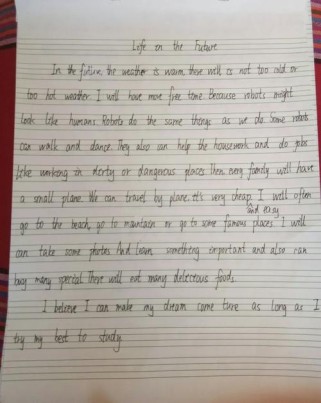 Life on the Future
In the future, the weather is warm, there will is not too cold or
too hot weather. I will have more free time. Because robots might
look like humans. Robots do the same things as we do. Some robots
can walk and dance. They also can help the housework and do jobs
like working in dirty or dangerous places. Then every family will have
a small plane. We can travel by plane. It's very cheap and easy. I will often
go to the beach, go to mountain or go to some famous places. I will
can take some photos. And learn something important and also can
buy many special. There will eat many deleceous foods.
I believe I can make my dream come ture as long as I
try my best to study